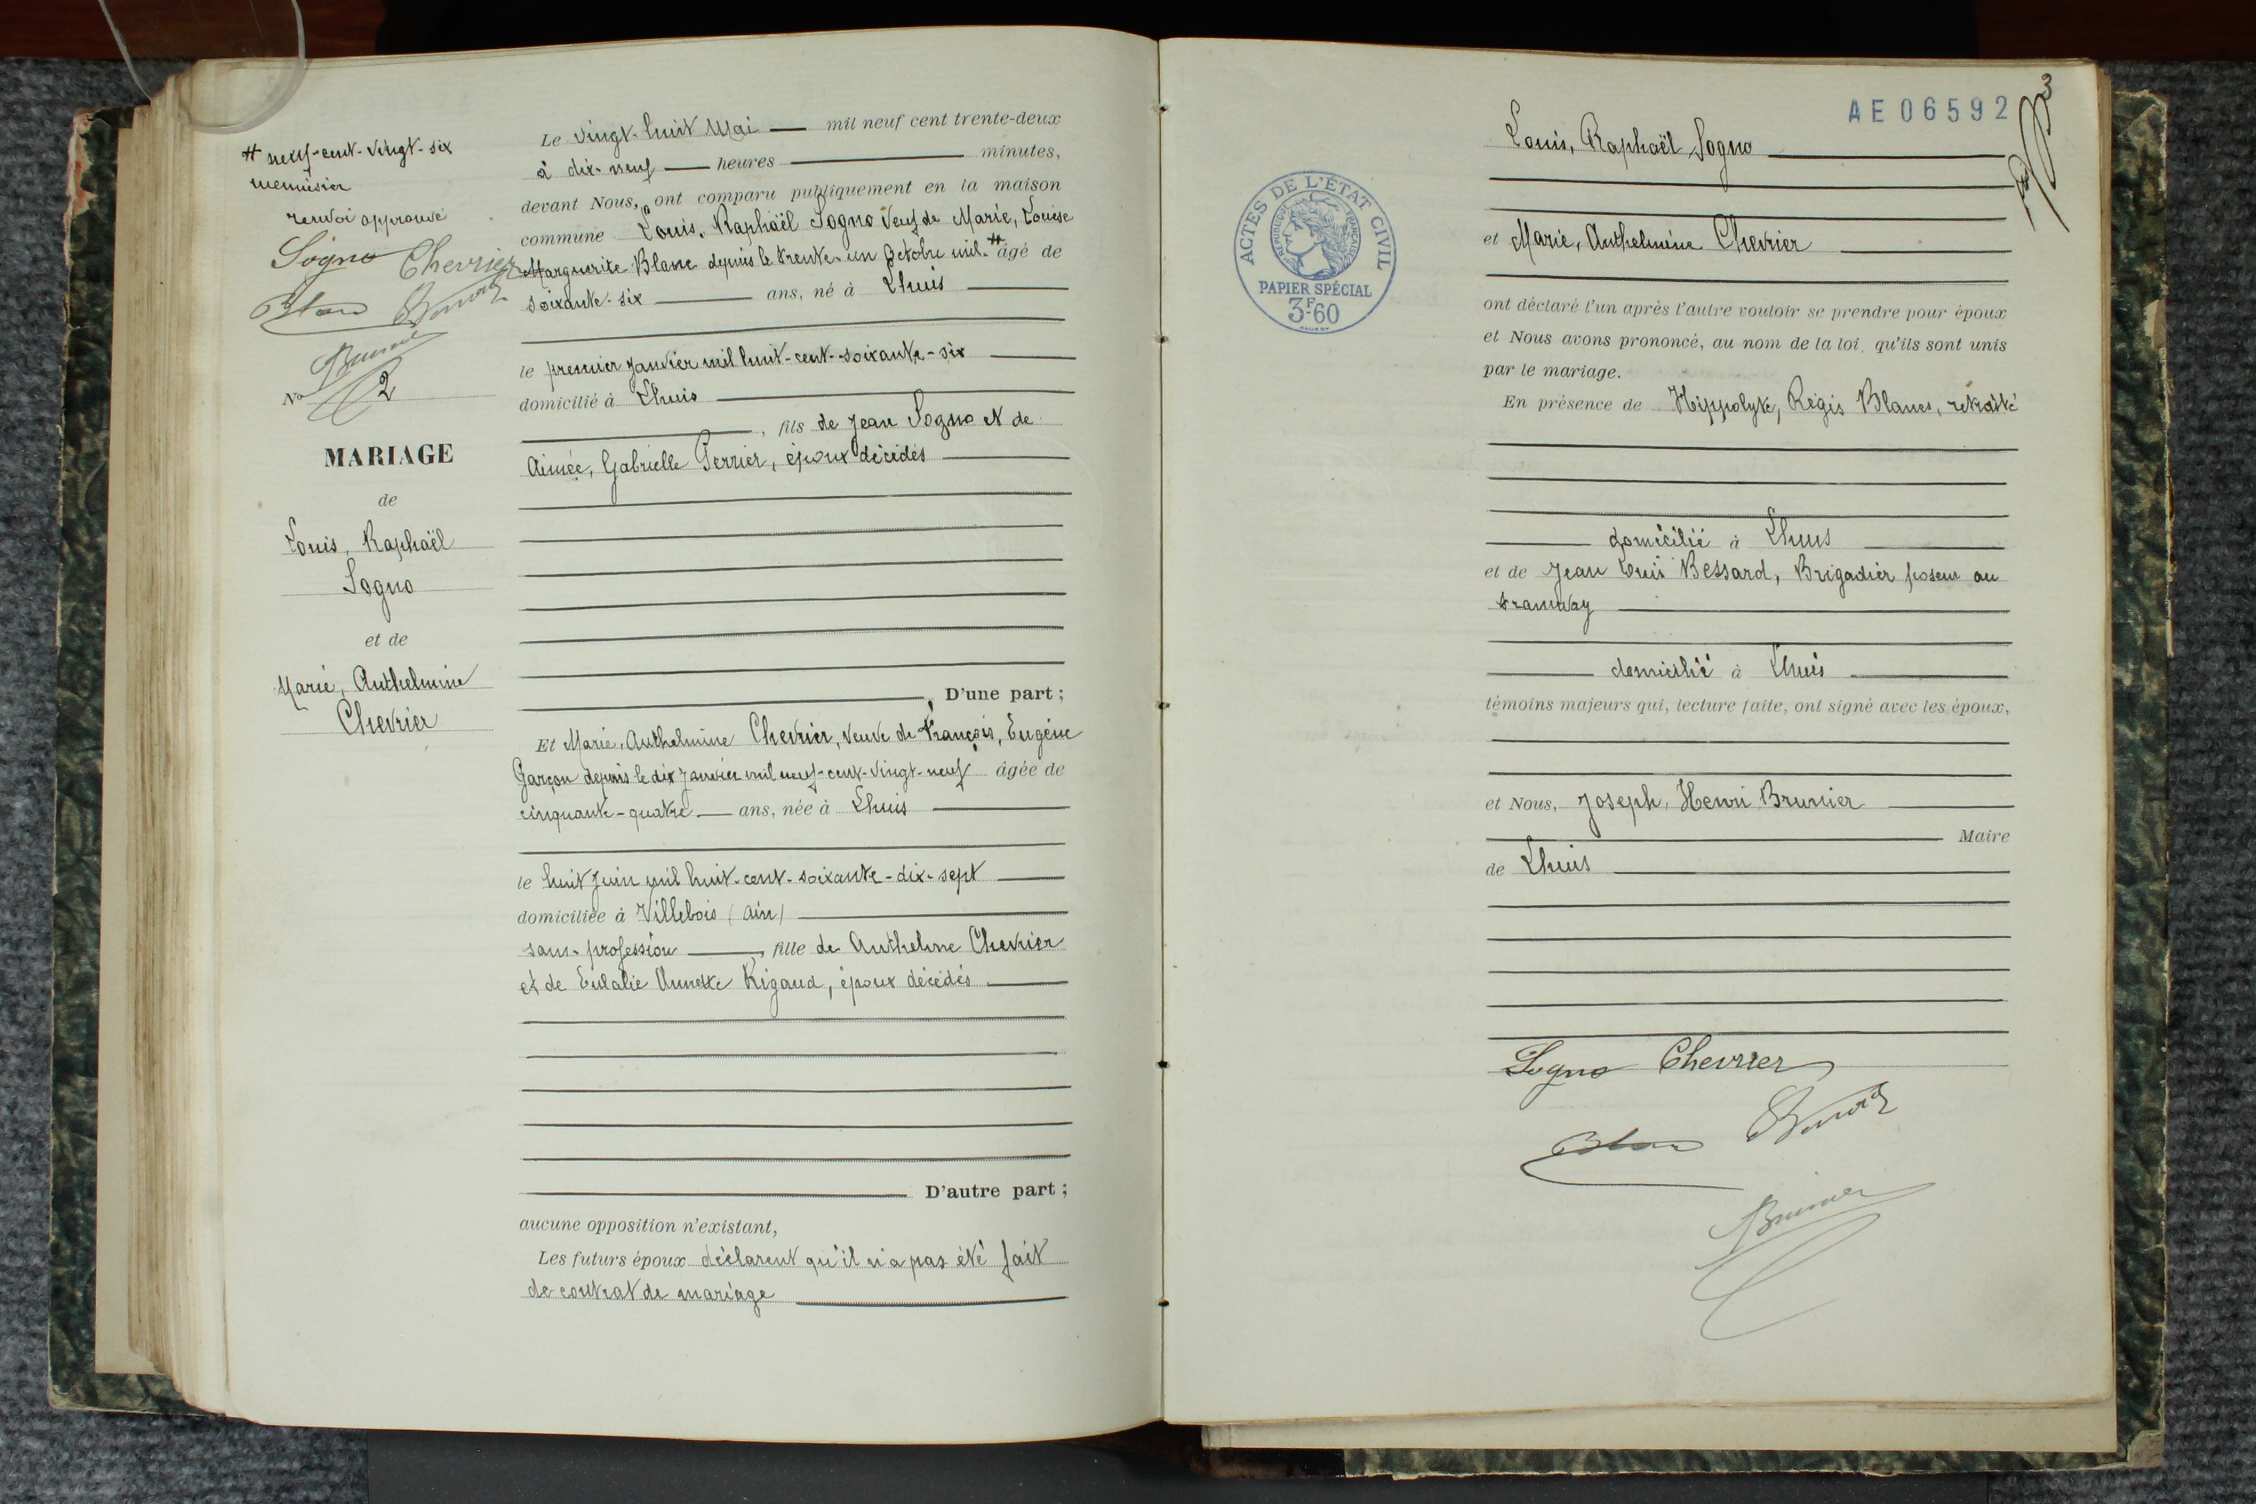 # neuf-cent-vingt-six
menuisier
renvoi approuvé
Sogno Chevrier
Blanc
Brunier
No 2
MARIAGE
de
Louis, Raphaël
Sogno
et de
Marie, Anthelmine
Chevrier
Le vingt-huit Mai mil neuf cent trente-deux
à dix-neuf heures minutes,
devant Nous, ont comparu publiquement en la maison
commune Louis, Raphaël Sogno Veuf de Marie, Louise
Marguerite Blanc depuis le trente-un Octobre mil-# âgé de
soixante-six ans, né à Lhuis
le premier Janvier mil huit-cent-soixante-six
domicilié à Lhuis
, fils de Jean Sogno et de
Aimée, Gabrielle Perrier, époux décédés
D'une part ;
Et Marie, Anthelmine Chevrier, veuve de François, Eugène
Garçon depuis le dix Janvier mil neuf-cent-vingt-neuf âgée de
cinquante-quatre ans, née à Lhuis
le huit Juin mil huit-cent-soixante-dix-sept
domiciliée à Villebois (Ain)
sans profession, fille de Anthelme Chevrier
et de Eulalie Annette Rigaud, époux décédés
D'autre part ;
aucune opposition n'existant,
Les futurs époux déclarent qu'il n'a pas été fait
de contrat de mariage
3
AE 06592
ACTES DE L'ÉTAT CIVIL
RÉPUBLIQUE FRANÇAISE
PAPIER SPÉCIAL
3F60
Louis, Raphaël Sogno
et Marie, Anthelmine Chevrier
ont déclaré l'un après l'autre vouloir se prendre pour époux
et Nous avons prononcé, au nom de la loi, qu'ils sont unis
par le mariage.
En présence de Hippolyte, Régis Blanc, retraité
domicilié à Lhuis
et de Jean Louis Bessard, Brigadier poseur au
tramway
domicilié à Lhuis
témoins majeurs qui, lecture faite, ont signé avec les époux,
et Nous, Joseph, Henri Brunier
Maire
de Lhuis
Sogno Chevrier
Blanc
Brunier